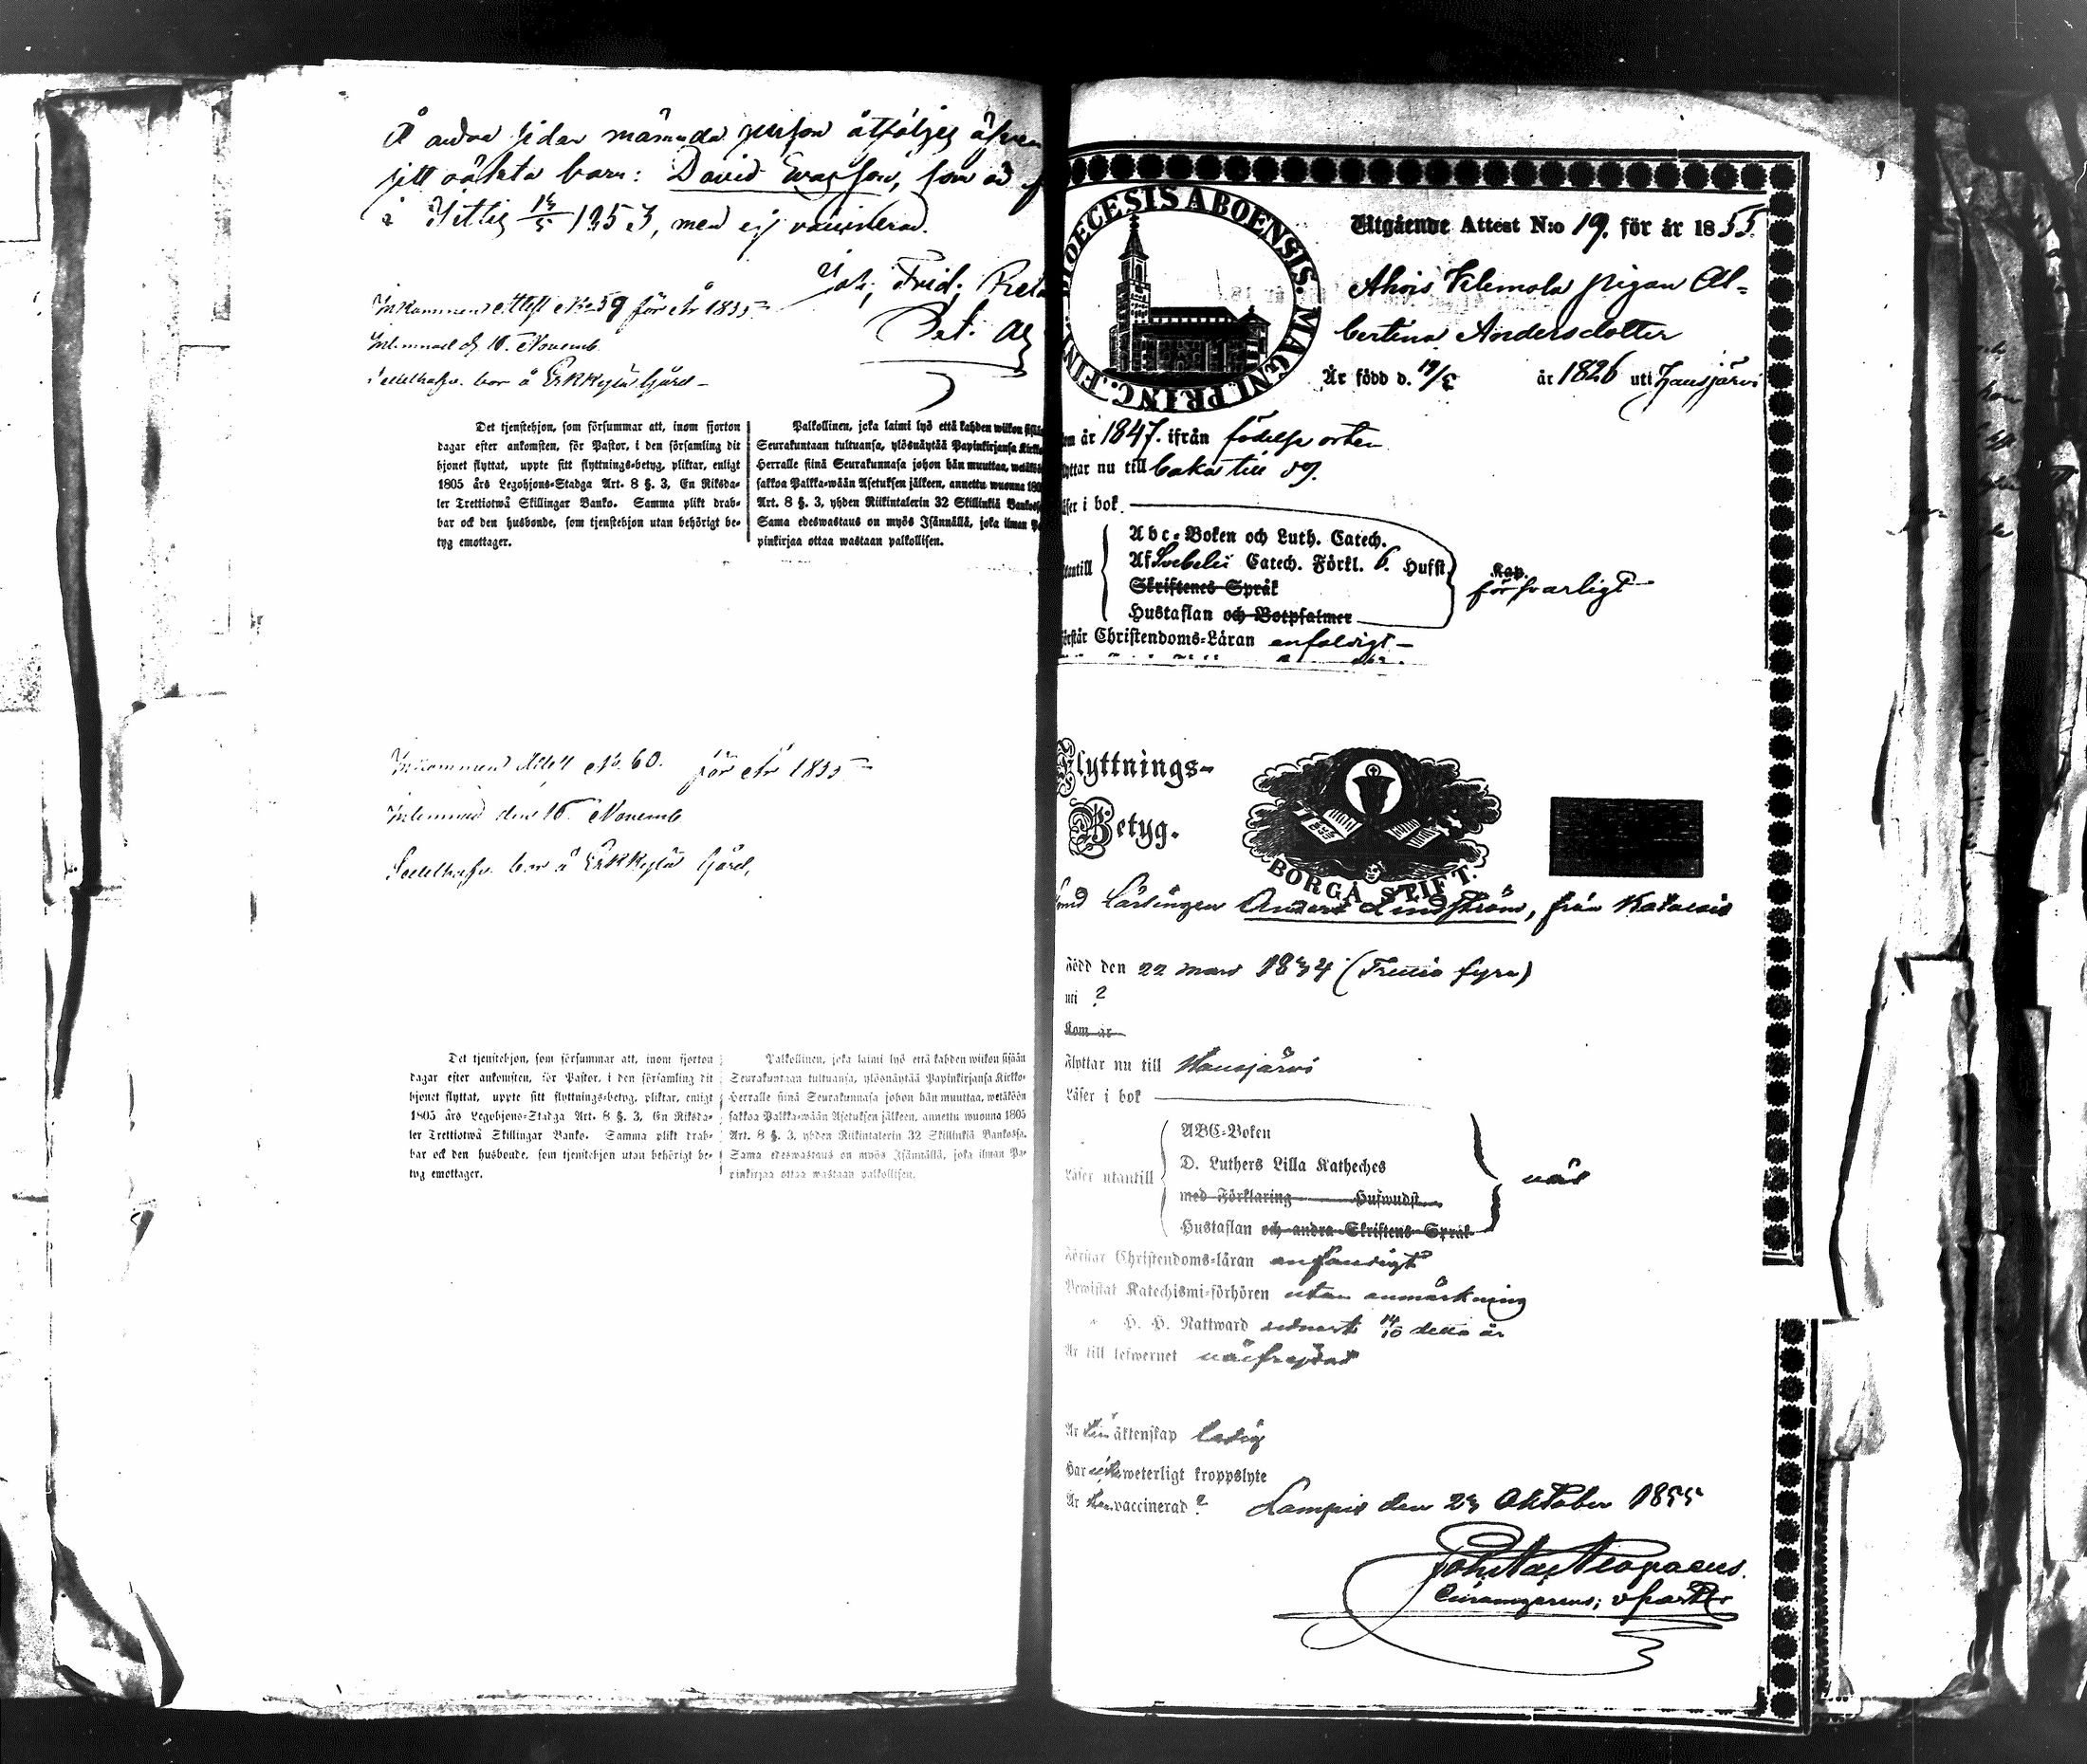 Å andra sidan nämnda person åtföljes äfven
sitt oäkta barn: David Evasson, som är
i Jittis 13/5 1853, men ej vaccinerad.
Joh. Frid.
Inkommen Attest No 59 för År 1855
Inlemnad d 10 Novemb.
Sedelhafv. bor å Erkkylä Gård
Det tjenstehjon, som försummar att, inom fjorton
dagar efter ankomsten, för Pastor, i den församling dit
hjonet flyttat, uppte sitt flyttnings-betyg, pliktar, enligt
1805 års Legohjons-Stadga Art. 8 §. 3, En Riksda-
ler Trettiotwå Skillingar Banko. Samma plikt drab-
bar ock den husbonde, som tjenstehjon utan behörigt be-
tyg emottager.
Palkollinen, joka laimi lyö että kahden wiikon sisään
Seurakuntaan tultuansa, ylösnäytää Papinkirjansa Kirkko-
Herralle siinä Seurakunnasa johon hän muuttaa, wetäköön
sakkoa Palkka-wään Asetuksen jälkeen, annettu wuonna 1805
Art. 8 §. 3, yhden Riikintalerin 32 Skillinkiä Bankossa.
Sama edeswastaus on myös Isännällä, joka ilman Pa-
pinkirjaa ottaa wastaan palkollisen.
Inkommen Attest No. 60. för År 1855
Inlemnad den 10 Novemb
Sedelhafv. bor å Erkkylä Gård,
Det tjenstehjon, som försummar att, inom fjorton
dagar efter ankomsten, för Pastor, i den församling dit
hjonet flyttat, uppte sitt flyttnings-betyg, pliktar, enligt
1805 års Legohjons-Stadga Art. 8 §. 3, En Riksda-
ler Trettiotwå Skillingar Banko. Samma plikt drab-
bar ock den husbonde, som tjenstehjon utan behörigt be-
tyg emottager.
Palkollinen, joka laimi lyö että kahden wiikon sisään
Seurakuntaan tultuansa, ylösnäytää Papinkirjansa Kirkko-
Herralle siinä Seurakunnasa johon hän muuttaa, wetäköön
sakkoa Palkka-wään Asetuksen jälkeen, annettu wuonna 1805
Art. 8 §. 3, yhden Riikintalerin 32 Skillinkiä Bankossa.
Sama edeswastaus on myös Isännällä, joka ilman Pa-
pinkirjaa ottaa wastaan palkollisen.
DIOECESIS ABOENSIS. MAGNI PRINC. FINL
Utgående Attest N:o 19. för år 1855.
Ahois Klemola pigan Al-
bertina Andersdotter
Är född d. 19/3 år 1826 uti Hausjärvi
år 1847. ifrån födelse orten
nu till baka till dg.
i bok
Abc-Boken och Luth. Catech.
Af Svebelii Catech. Förkl. 6. Hufst. Kap.
Skriftenes Språk
Hustaflan och Botpsalmer
försvarligt
Christendoms-Läran enfaldigt
Flyttnings-
Betyg.
BORGÅ STIFT.
Lärlingen Anders Lindström, från Kataloisis
Född den 22 mars 1834 (Trettio fyra)
uti ?
Kom år
Flyttar nu till Hausjärvi
Läser i bok
Läser utantill
ABC-Boken
D. Luthers Lilla Katheches
med Förklaring Hufwudst.
Hustaflan och andra Skriftens Språk
väl
Förstår Christendoms-läran enfaldigt
Bewistat Katechismi-förhören utan anmärkning
H. H. Nattward sednast 14/10 detta år
Är till lefwernet välfrejdad
Är till äktenskap ledig
Har weterligt kroppslyte
Är vaccinerad ?
Lampis den 23 Oktober 1855